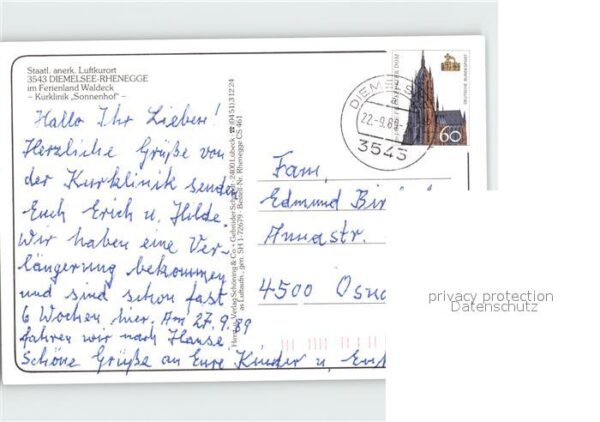 Staatl. anerk. Luftkurort
3543 DIEMELSEE-RHENEGGE
im Ferienland Waldeck
– Kurklinik „Sonnenhof" –
Hallo Ihr Lieben!
Herzliche Grüße von
der Kurklinik senden
Euch Erich u. Hilde.
Wir haben eine Ver-
längerung bekommen
und sind schon fast
6 Wochen hier. Am 27.9.89
fahren wir nach Hause.
Schöne Grüße an Eure Kinder u.
Verlag Schöning & Co • Gebrüder Schmidt • 2400 Lübeck • ☎ (0451) 31224
Luftaufn. gen. SH 1-72679 • Bestell-Nr. Rhenegge CS 461
DIEM
22.-9.89
3543
DOM
DEUTSCHE BUNDESPOST
60
Fam.
Edmund
Annastr.
4500 Osna
privacy protection
Datenschutz